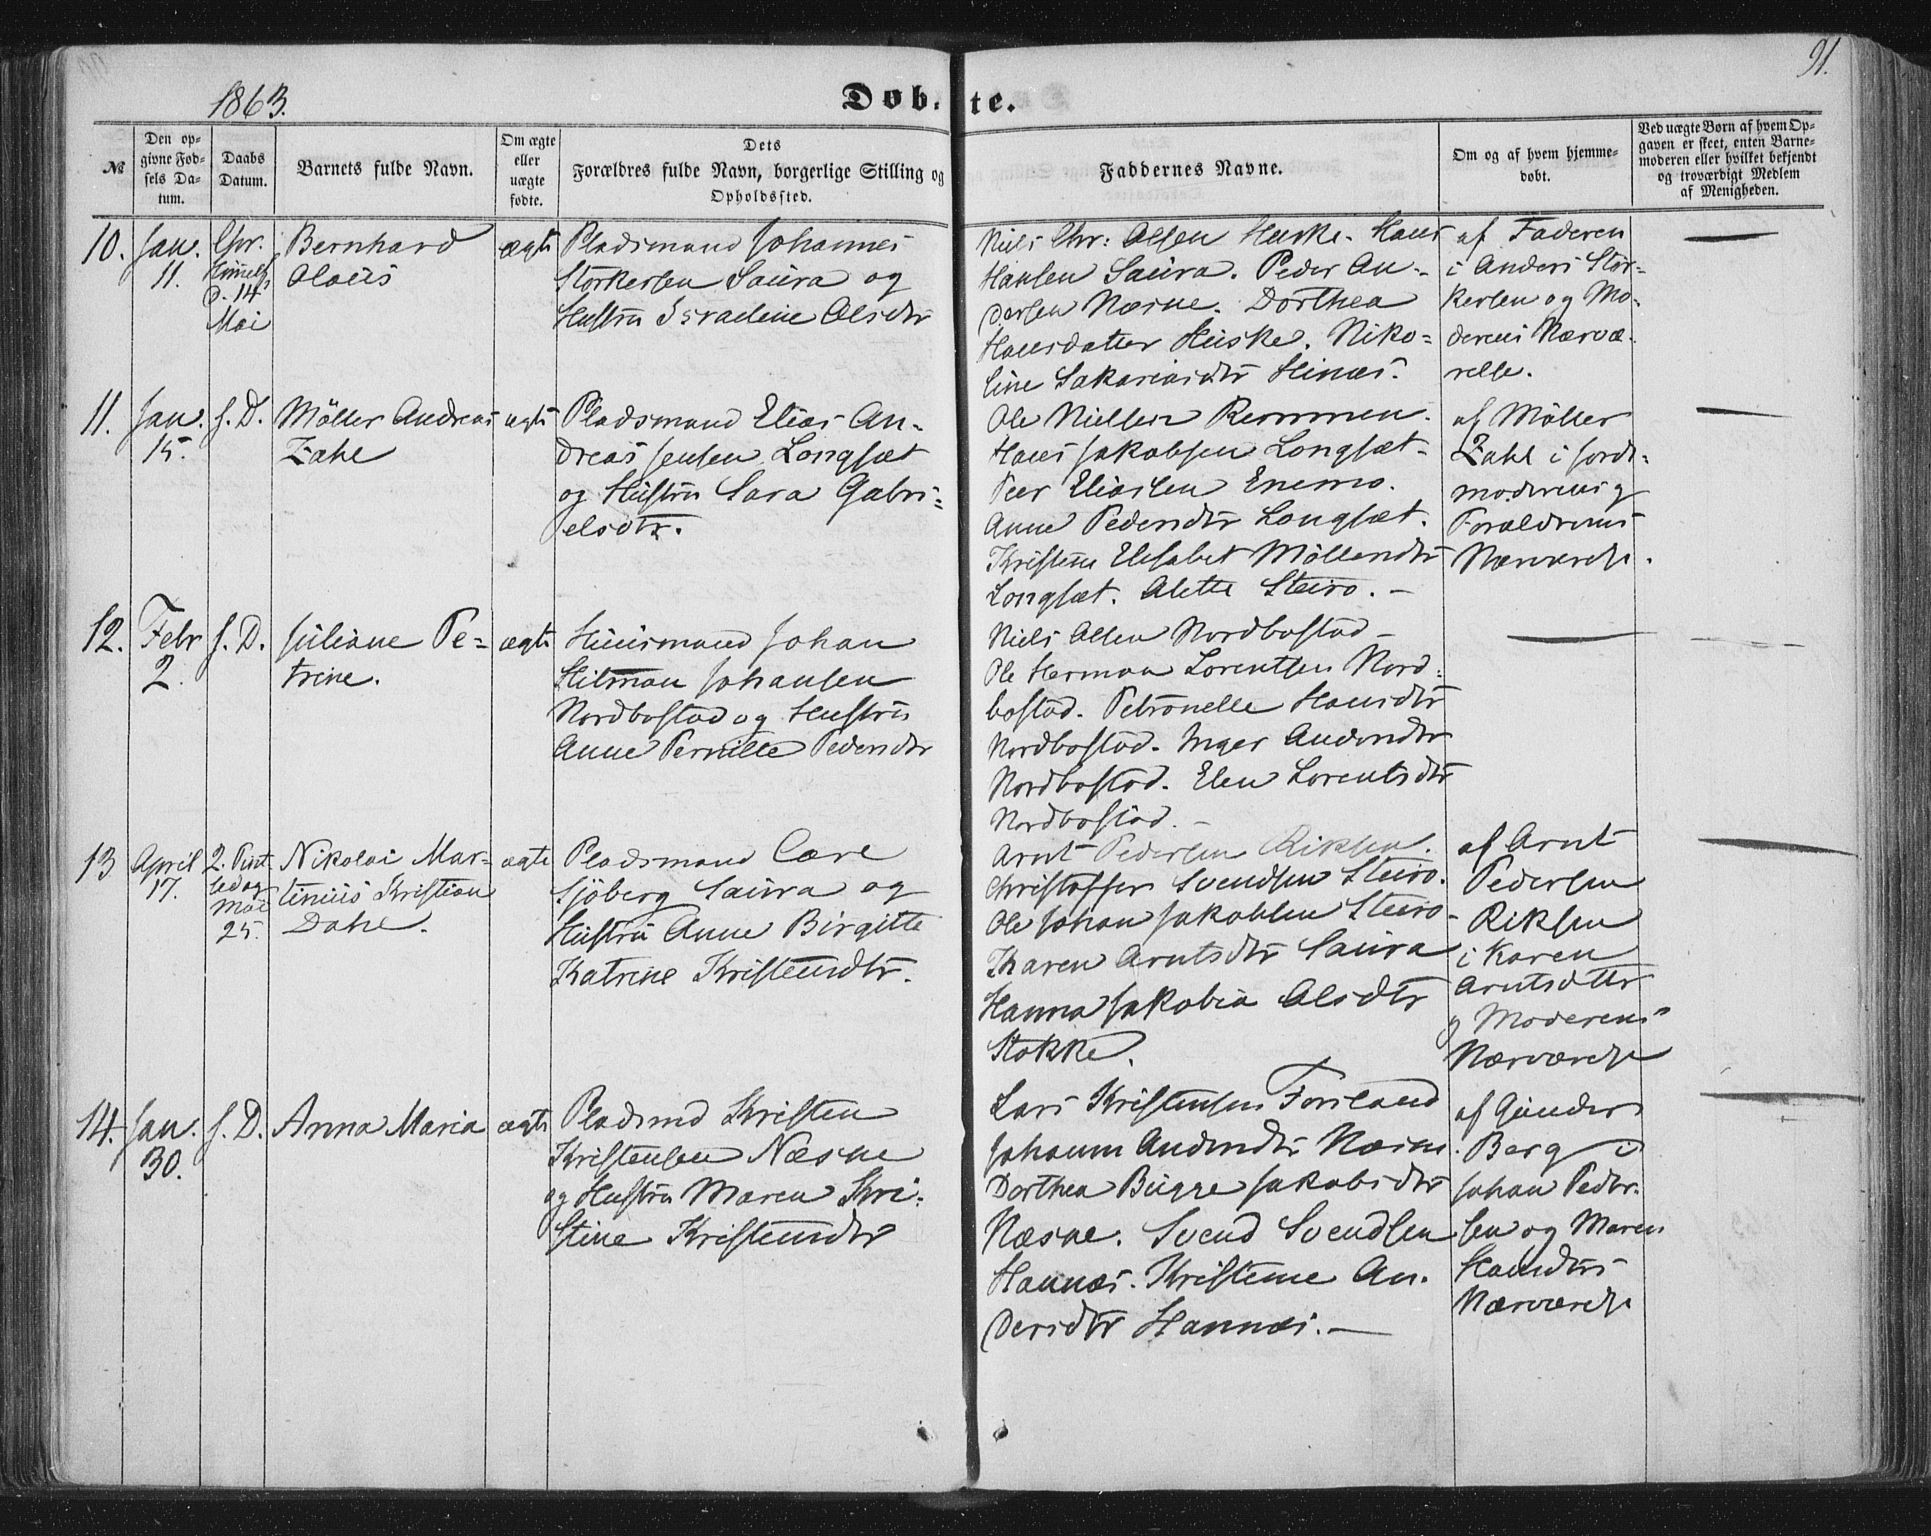 1863.
Døb. te.
91.
№
Den op-
givne Fød-
sels Da-
tum.
Daabs
Datum.
Barnets fulde Navn.
Om ægte
eller
uægte
fødte.
Dets
Forældres fulde Navn, borgerlige Stilling og
Opholdssted.
Faddernes Navne.
Om og af hvem hjemme-
døbt.
Ved uægte Børn af hvem Op-
gaven er skeet, enten Barne-
moderen eller hvilket bekjendt
og troværdigt Medlem
af Menigheden.
10.
Jan.
11.
Chr.
Himelf
D. 14
Mai
Bernhard
Olaus
ægte
Pladsmand Johannes
Storkersen Saura og
Hustru Israeline Olsdtr
Niels Chr: Olsen Huske. Hans
Hansen Saura. Peder An-
dersen Næsne. Dorthea
Hansdatter Huske. Niko=
line Sakariasdtr Hinæs.
af Faderen
i Anders Stor-
kersen og Mo-
derens Nærvæ-
relse.
11.
Jan.
15.
s. D.
Möller Andreas
Zahl
ægte
Pladsmand Elias An-
dreas Jensen Longsæt
og Hustru Sara Gabri=
elsdtr.
Ole Nielsen Remmen.
Hans Jakobsen Longsæt.
Peer Eliassen Enemo.
Anne Pedersdtr Longsæt.
Kristine Elisabet Möllersdtr
Longsæt. Alette Steiro. -
af Möller
Zahl i Jord-
moderens og
Forældrenes
Nærværelse.
12.
Febr
2.
s. D.
Juliane Pe-
trine.
ægte
Huusmand Johan
Hitman Johansen
Nordbostad og Hustru
Anne Pernille Pedersdtr
Niels Olsen Nordbostad -
Ole Herman Lorentsen Nord-
bostad. Petronelle Hansdtr
Nordbostad. Inger Andersdtr
Nordbostad. Elen Lorentsdtr
Nordbostad. -
13
April
17.
2. Pint
sedag
Mai
25.
Nikolai Mar-
tinius Kristian
Dahl.
ægte
Pladsmand Carl
Sjöberg Saura og
Hustru Anne Birgitte
Katrine Kristensdtr.
Arnt Pedersen Riksen.
Christoffer Svendsen Steiro.
Ole Johan Jakobsen Steiro-
Karen Arntsdtr Saura
Hanna Jakobia Olsdtr
Stokke.
af Arnt
Pedersen
Riksen
i Karen
Arntsdtr
og Moderens
Nærværelse
14.
Jan.
30.
s. D.
Anna Maria
ægte
Pladsmd Kristen
Kristensen Næsne
og Hustru Maren Kri-
stine Kristensdtr
Lars Kristensen Forsland
Johanne Andersdtr Næsne.
Dorthea Bugge Jakobsdtr
Næsne. Svend Svendsen
Hannæs. Kristine An-
dersdtr Hannæs. -
af Gunder
Berg i
Johan Peder-
sen og Maren
Hansdtrs
Nærværelse